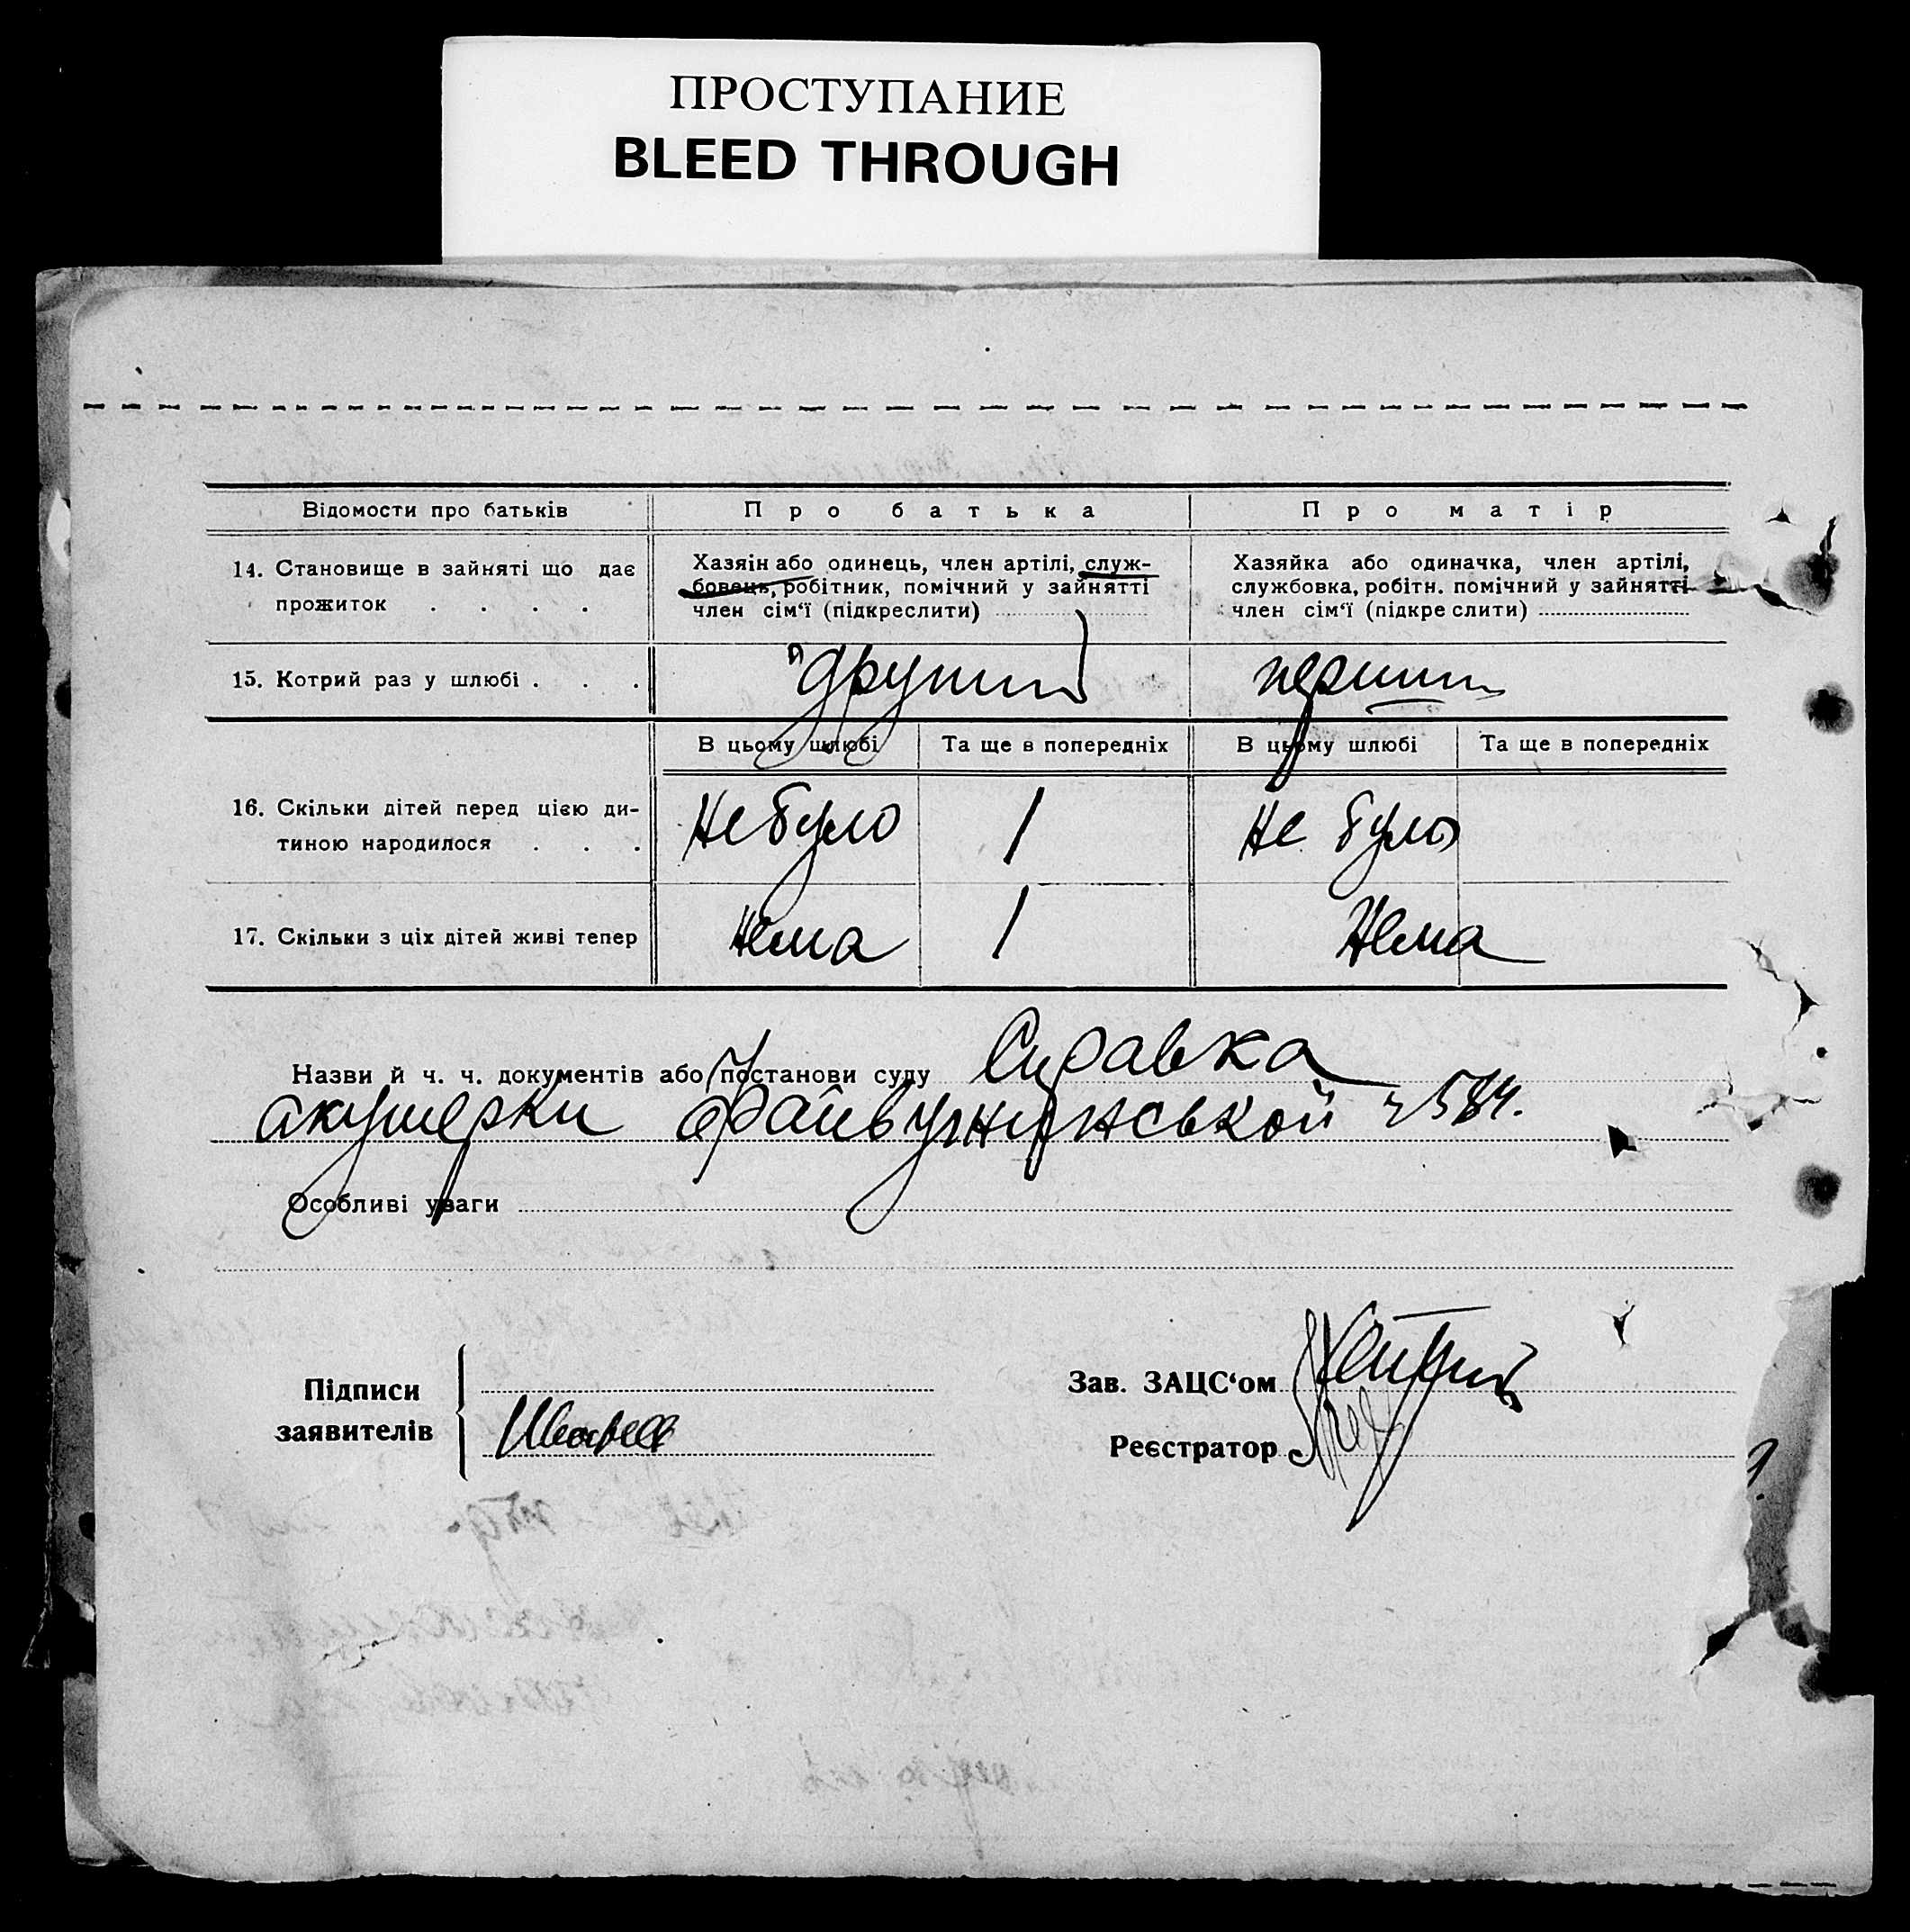 ПРОСТУПАНИЕ
BLEED THROUGH
Відомости про батьків
Про батька
Про матір
14. Становище в зайняті що дає
прожиток . . . .
Хазяін або одинець, член артілі, служ-
бовець, робітник, помічний у зайнятті
член сім‘ї (підкреслити)
Хазяйка або одиначка, член артілі,
службовка, робітн. помічний у зайнятті
член сім‘ї (підкре слити)
15. Котрий раз у шлюбі . . .
другий
перший
В цьому шлюбі
Та ще в попередніх
В цьому шлюбі
Та ще в попередніх
16. Скільки дітей перед цією ди-
тиною народилося . . .
Не було
1
Не було
17. Скільки з ціх дітей живі тепер
Нема
1
Нема
Назви й ч. ч. документів або постанови суду Справка
акушерки ч 584.
Особливі уваги
Підписи
заявителів
Зав. ЗАЦС‘ом
Реєстратор